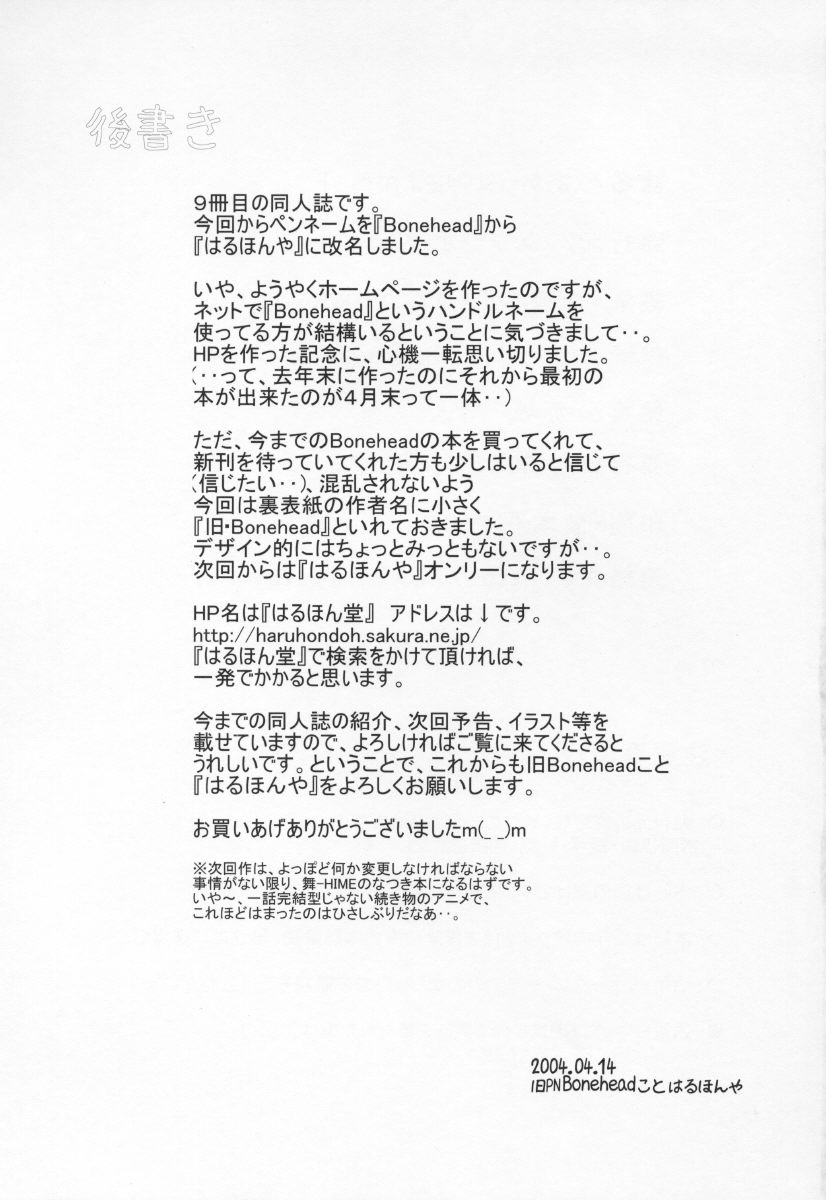 後書き
９冊目の同人誌です。
今回からペンネームを『Bonehead』から
『はるほんや』に改名しました。
いや、ようやくホームページを作ったのですが、
ネットで『Bonehead』というハンドルネームを
使ってる方が結構いるということに気づきまして‥。
HPを作った記念に、心機一転思い切りました。
(‥って、去年末に作ったのにそれから最初の
本が出来たのが４月末って一体‥)
ただ、今までのBoneheadの本を買ってくれて、
新刊を待っていてくれた方も少しはいると信じて
(信じたい‥)、混乱されないよう
今回は裏表紙の作者名に小さく
『旧・Bonehead』といれておきました。
デザイン的にはちょっとみっともないですが‥。
次回からは『はるほんや』オンリーになります。
HP名は『はるほん堂』　アドレスは↓です。
http://haruhondoh.sakura.ne.jp/
『はるほん堂』で検索をかけて頂ければ、
一発でかかると思います。
今までの同人誌の紹介、次回予告、イラスト等を
載せていますので、よろしければご覧に来てくださると
うれしいです。ということで、これからも旧Boneheadこと
『はるほんや』をよろしくお願いします。
お買いあげありがとうございましたm(_ _)m
※次回作は、よっぽど何か変更しなければならない
事情がない限り、舞-HIMEのなつき本になるはずです。
いや～、一話完結型じゃない続き物のアニメで、
これほどはまったのはひさしぶりだなあ‥。
2004.04.14
旧PNBoneheadこと はるほんや